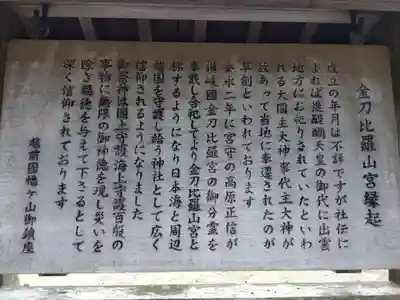 金刀比羅山宮縁起
成立の年月は不詳ですが社伝に
よれば後醍醐天皇の御代に出雲
地方にお祀りされていたといわ
れる大国主大神事代主大神が
故あって当地に奉遷されたのが
草創といわれております
安永二年に宮守の高原正信が
讃岐國金刀比羅宮の御分霊を
奉戴し合祀してより金刀比羅山宮と
称するようになり日本海と周辺
諸国を守護し給う神社として広く
信仰されるようになりました
御祭神は国土守護海上守護百般の
事物に無限の御神徳を現し災いを
除き福徳を与えて下さるとして
深く信仰されております
越前國幡ヶ山御鎮座